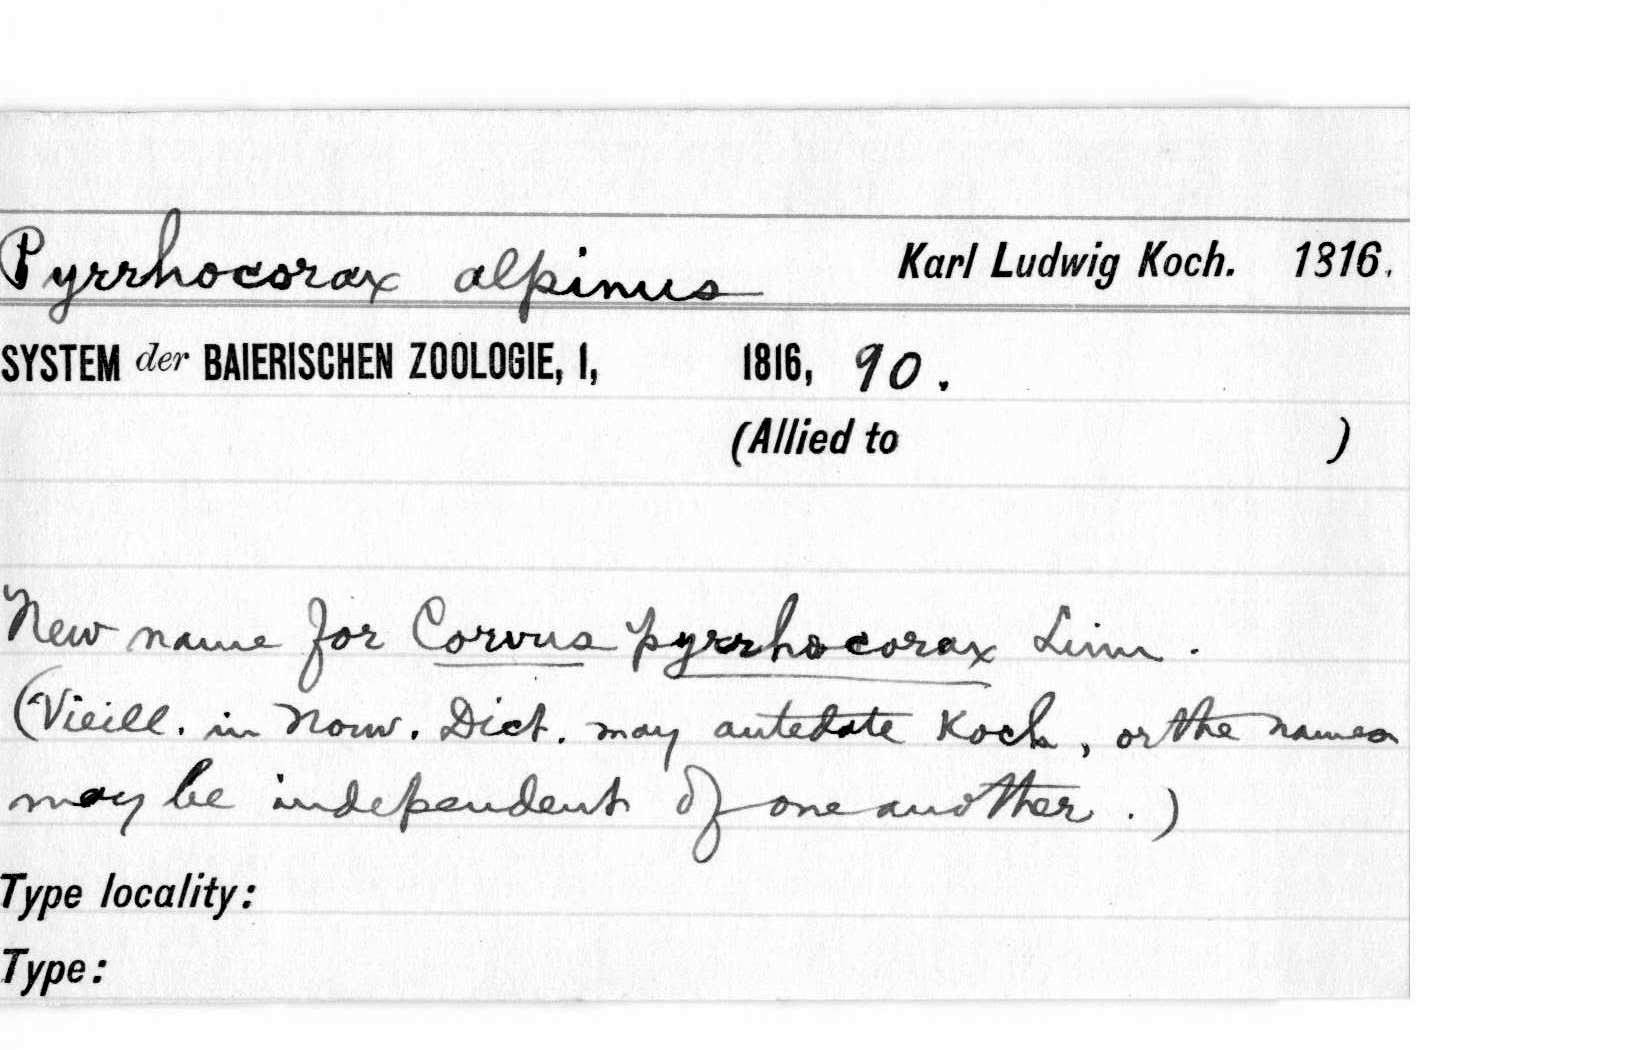 Pyrrhocorax alpinus Karl Ludwig Koch. 1816.
SYSTEM der BAIERISCHEN ZOOLOGIE, I, 1816, 90.
(Allied to )
New name for Corvus pyrrhocorax Linn.
(Vieill. in Nouv. Dict. may antedate Koch, or the names
may be independent of one another.)
Type locality:
Type: